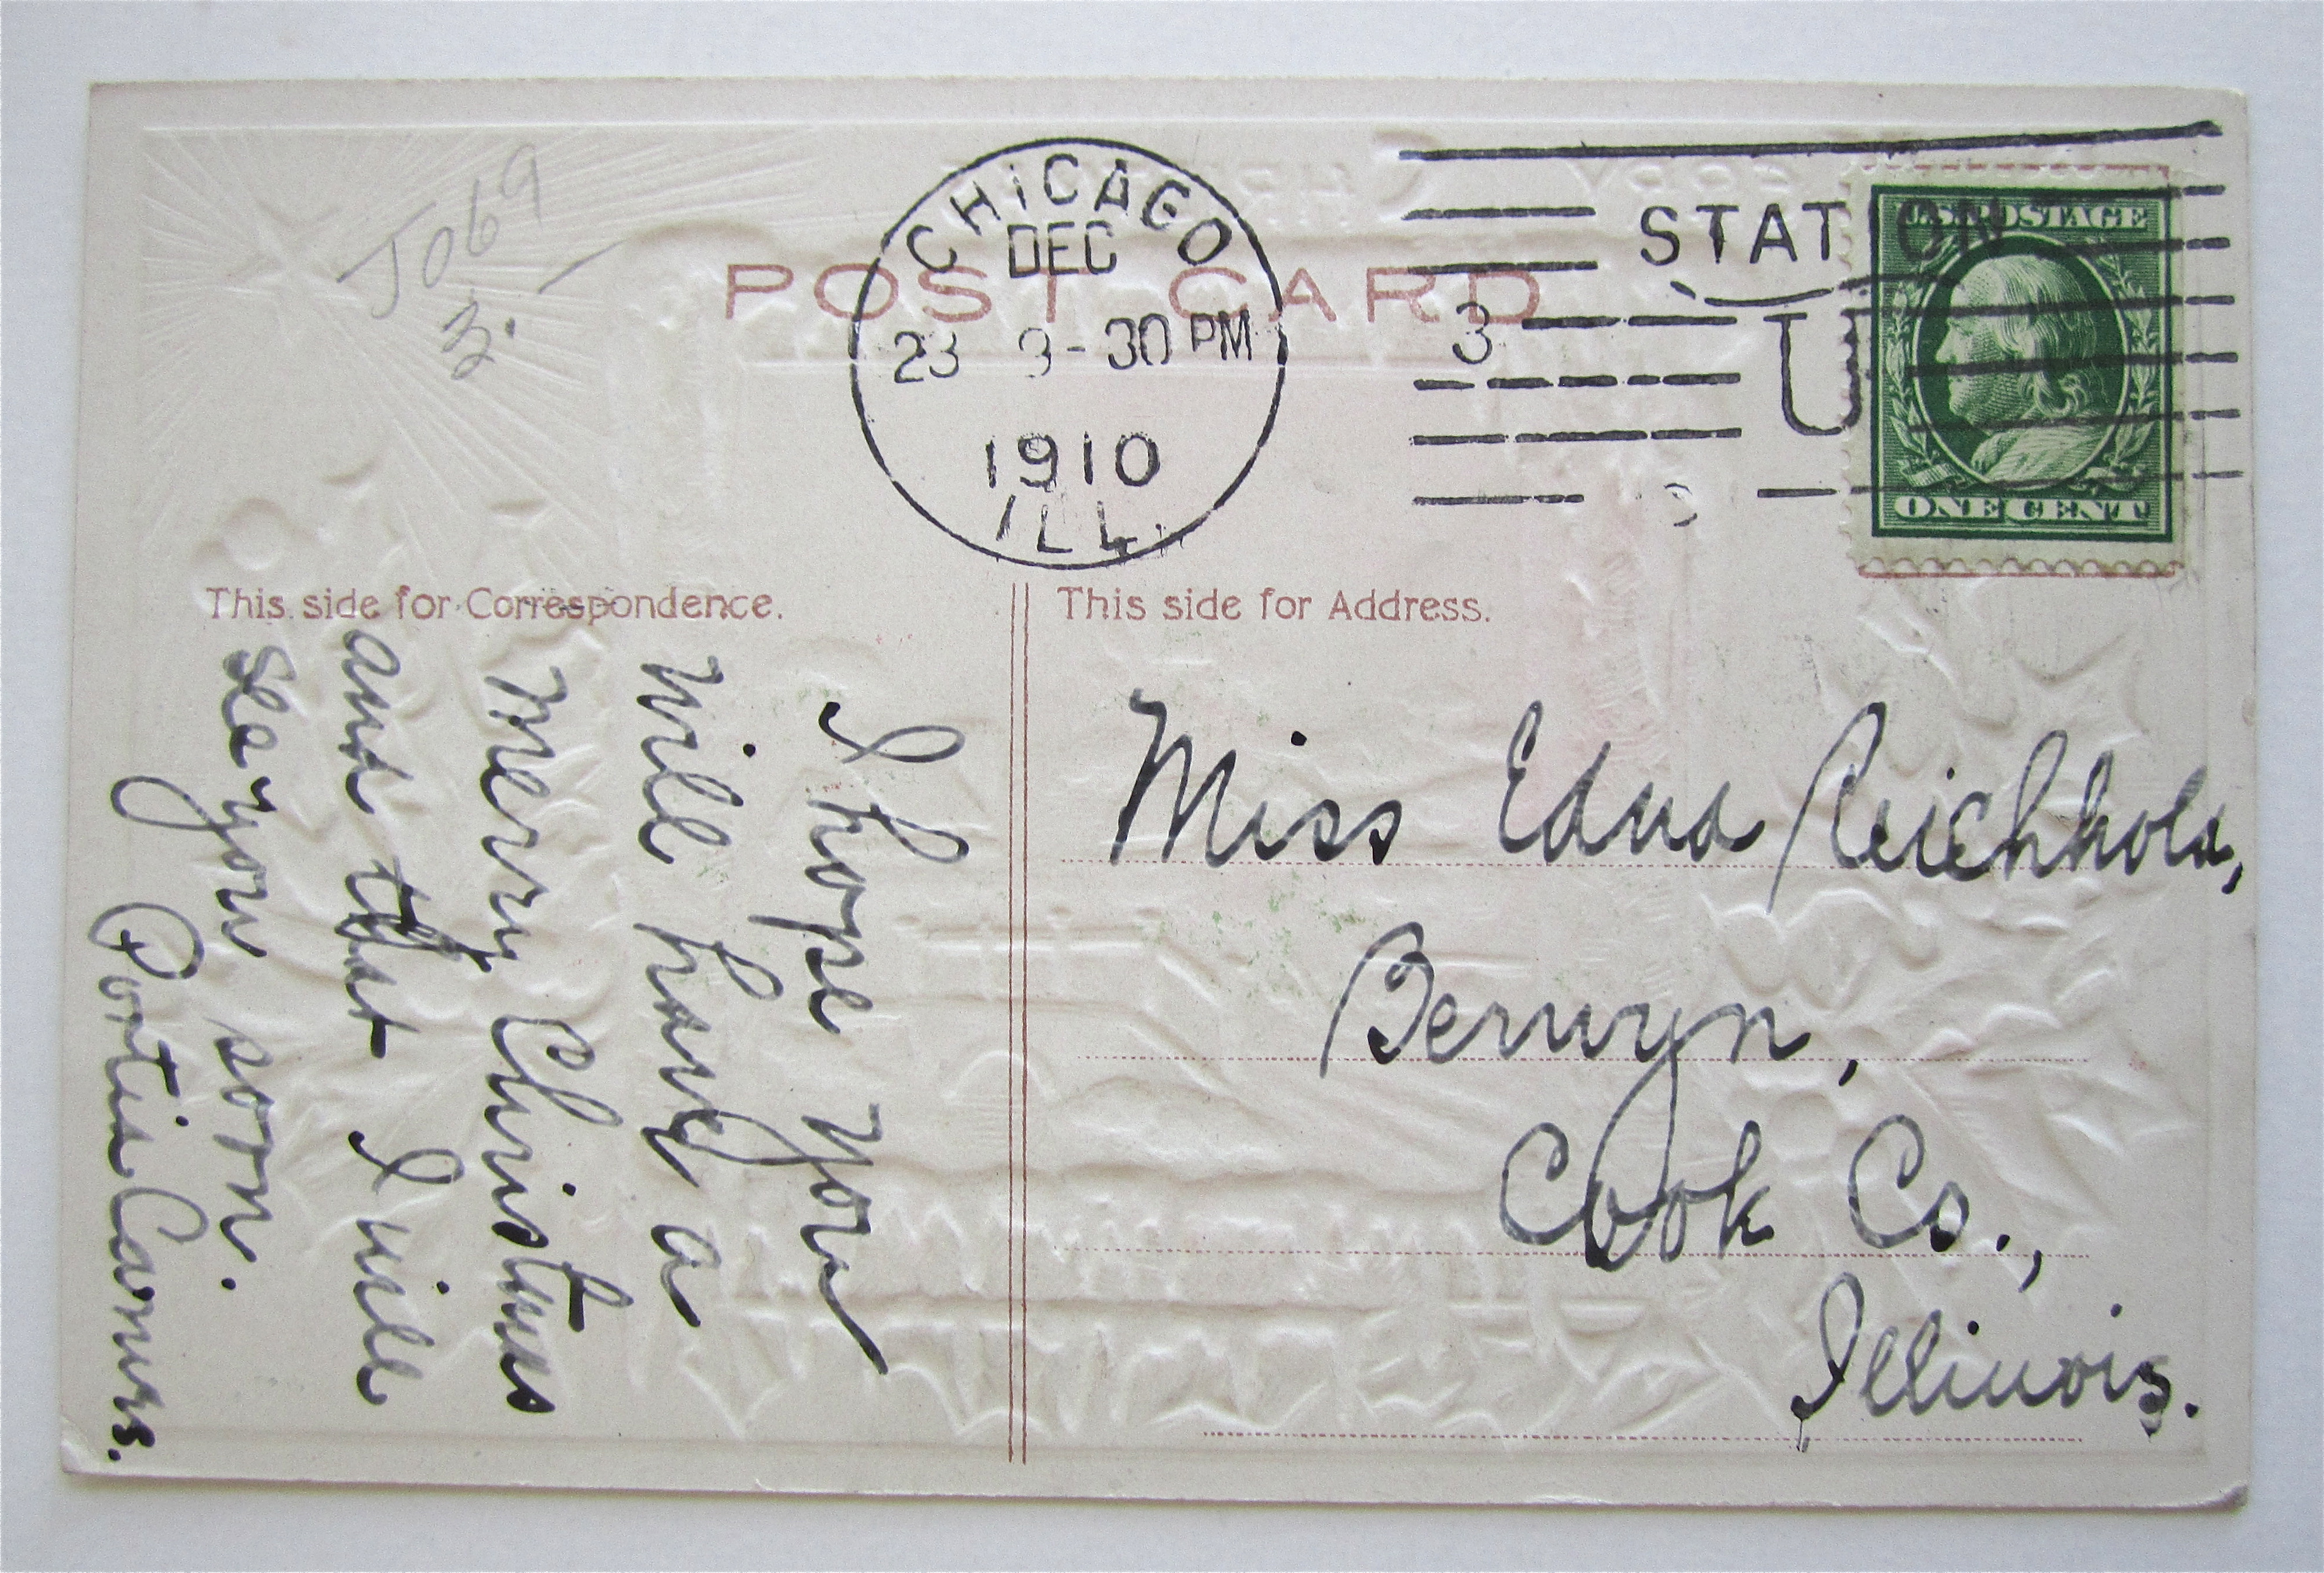 J069
3.
CHICAGO
DEC
23 3-30 PM
1910
ILL.
STATION
3
U
U.S. POSTAGE
ONE CENT
POST CARD
This side for Correspondence.
I hope you
will have a
Merry Christmas
and that I will
see you soon.
Portia Carnes.
This side for Address.
Miss Edna Reichhold,
Berwyn,
Cook Co.,
Illinois.